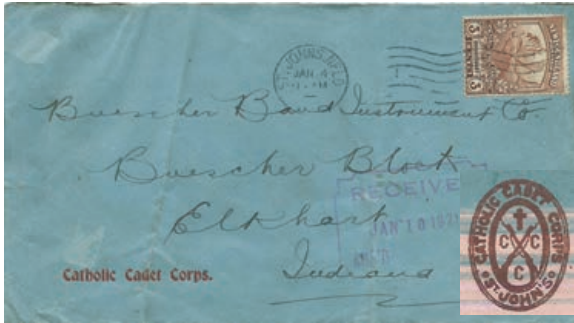 ST. JOHN'S, NFLD
JAN 4
NEWFOUNDLAND
3 CENTS 3
Buescher Band Instrument Co.
Buescher Block
Elkhart
Indiana
RECEIVE
JAN 10 1921
Catholic Cadet Corps.
CATHOLIC CADET CORPS
ST. JOHN'S
C C
C